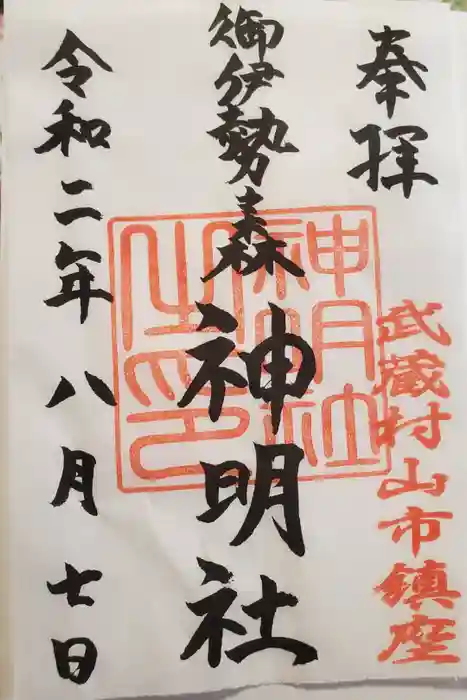 奉拝
武蔵村山市鎮座
御伊勢森神明社
神明社之印
令和二年八月七日